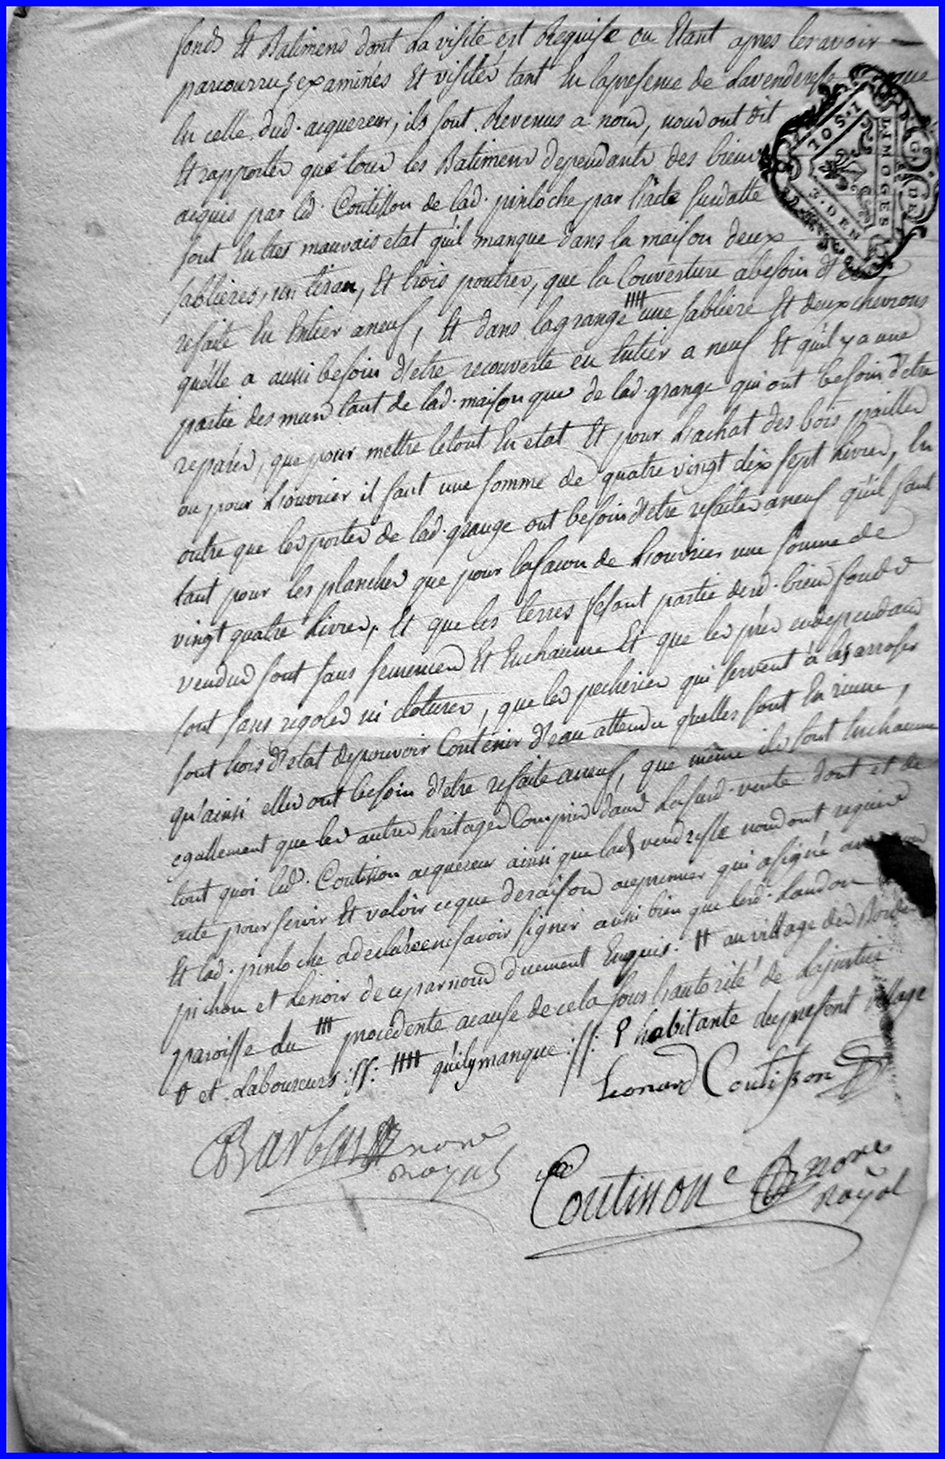 fonds Et Batimens dont la visite est Requise ou Etant apres les avoir
parcourrus examinés Et visités tant En la presence de la venderesse que
En celle dud. acquereur, ils sont Revenus a nous, nous ont dit
Et rapporté que tous les Batimens dependants des biens
acquis par led. Coutisson de lad. pinloche par l'acte susdatte
sont En tres mauvais etat qu'il manque dans la maison deux
sablieres, un tiran, Et trois poutres, que la Couverture a besoin d'Etre
refaite En Entier aneuf, Et dans la grange #### une sabliere Et deux chevrons
qu'elle a aussi besoin d'etre recouverte en Entier a neuf Et qu'il y a une
partie des murs tant de lad. maison que de lad. grange qui ont besoin d'etre
reparés, que pour mettre le tout En etat Et pour L'achat des bois pailles
ou pour L'ouvrier il faut une somme de quatre vingt dix sept Livres, En
outre que les portes de lad. grange ont besoin d'etre refaites aneuf qu'il faut
tant pour les planches que pour la facon de L'ouvrier une somme de
vingt quatre Livres, Et que les terres fesant partie desd. biens fonds
vendus sont sans semences Et En chaume Et que les prés en dependans
sont sans regoles ni clotures, que les pecheries qui servent à les arroser
sont hors d'etat de pouvoir Contenir d'eau attendu qu'elles sont En ruine,
qu'ainsi elles ont besoin d'etre refaite aneuf, que même ils sont En chaume
egallement que les autres heritages Compris dans la susd. vente dont et de
tout quoi led. Coutisson acquereur ainsi que lad. venderesse nous ont requis
acte pour servir Et valoir ce que de raison au premier qui a signé avec nous
Et lad. pinloche a declaré ne savoir signer aussi bien que lesd. Landon
pichon et Lenoir de ce par nous duement Enquis. # au village des Bordes
paroisse du ### procedente a cause de cela sous l'autorité de La justice
et Laboureurs :ss: #### qu'il y manque :ss: habitante du present village
Leonard Coutisson
Barbou nore
royal
Coutisson nore
royal
G. DE LIMOGES
10 S. 1
3. DEN